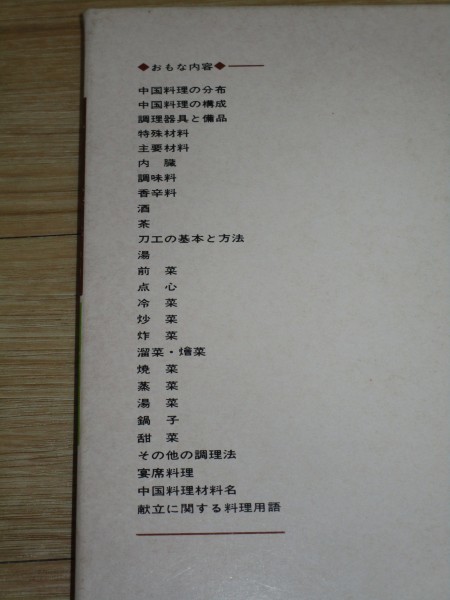 ◆おもな内容◆
中国料理の分布
中国料理の構成
調理器具と備品
特殊材料
主要材料
内　臓
調味料
香辛料
酒
茶
刀工の基本と方法
湯
前　菜
点　心
冷　菜
炒　菜
炸　菜
溜菜・燴菜
焼　菜
蒸　菜
湯　菜
鍋　子
甜　菜
その他の調理法
宴席料理
中国料理材料名
献立に関する料理用語